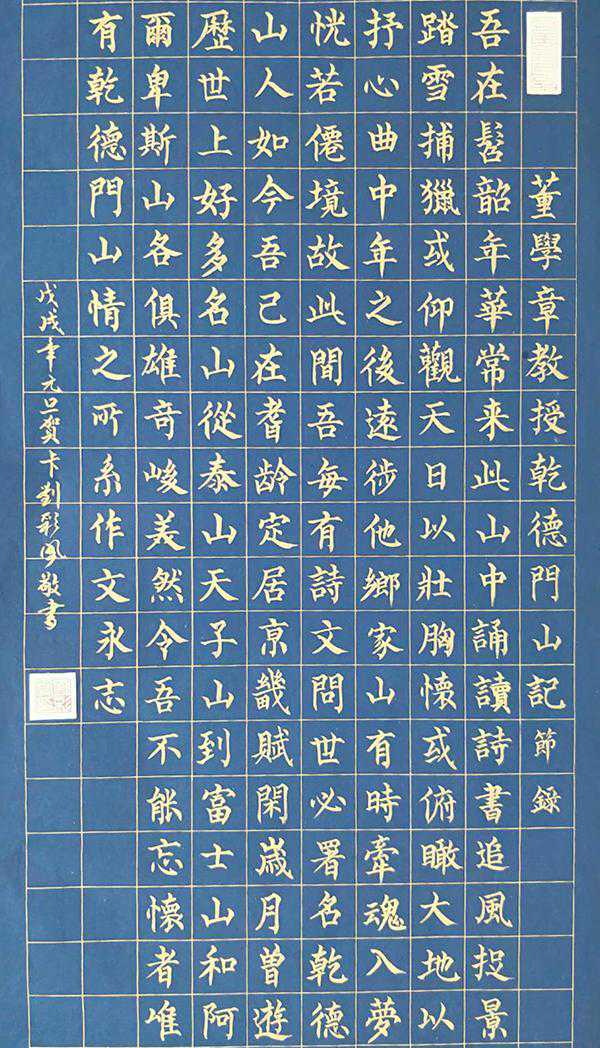 董學章教授乾德門山記節錄
吾在髫韶年華常来此山中誦讀詩書追風捉景
踏雪捕獵或仰觀天日以壯胸懷或俯瞰大地以
抒心曲中年之後遠徙他鄉家山有時牽魂入夢
恍若僊境故此間吾每有詩文問世必署名乾德
山人如今吾已在耆龄定居京畿賦閑歲月曾遊
歷世上好多名山從泰山天子山到富士山和阿
爾卑斯山各俱雄奇峻美然令吾不能忘懷者唯
有乾德門山情之所系作文永志
戊戌年元旦賀卡刘彩凤敬書